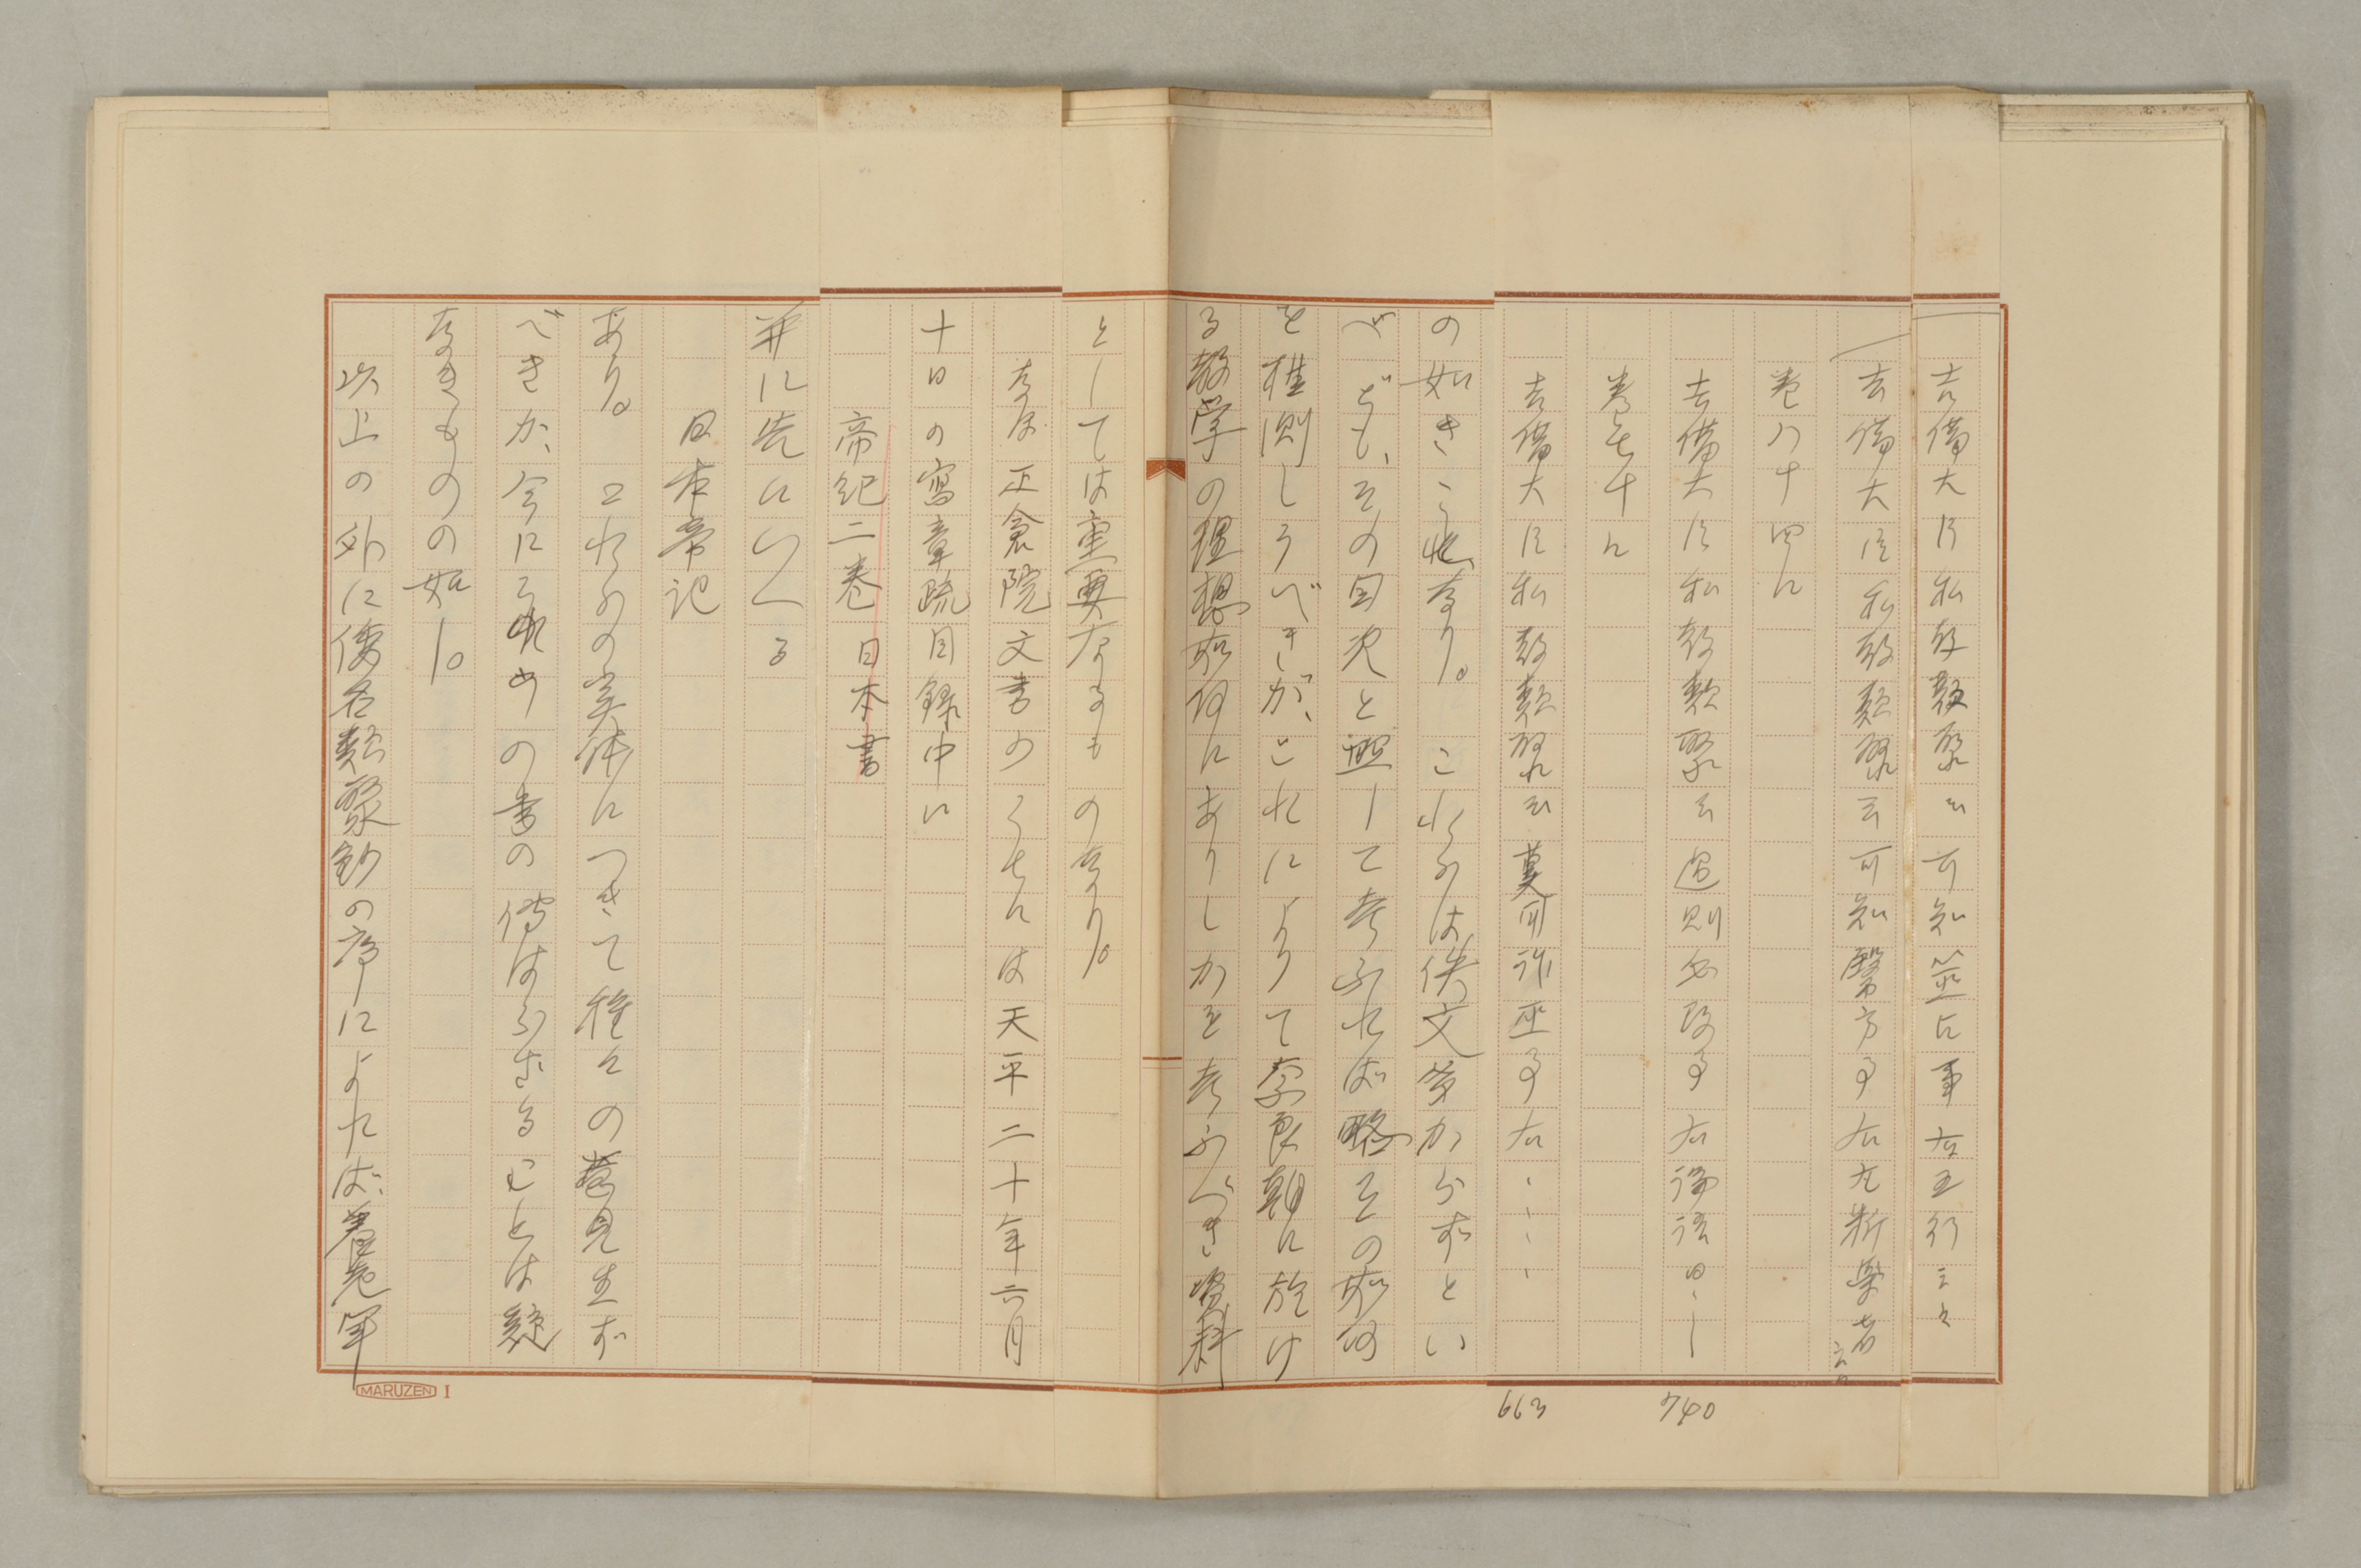 吉備大臣私教類聚云 可知筮占事 右五行云々
吉備大臣私教類聚云 可知醫方事 右尤断藥者云々
巻八十四に
吉備大臣私教類聚云 過則必改事 右論語曰
巻七十に
吉備大臣私教類聚云 莫用詐巫事 右、、、、
の如きこれなり。 これらは佚文営からずとい
へども、その目次と照して考ふれば略その如何
を推測しうべきが、これによりて奈良朝に於け
る教学の理想如何にありしかを考ふべき資料
としては重要なるものなり。
なほ正倉院文書のうちには天平二十年六月
十日の寫章疏目録中に
帝紀二巻 日本書
并に先にいへる
日本帝記
あり。 これらの実体につきて種々の意見生ず
べきか、今にこれらの書の傳はらざることは疑
なきものの如し。
以上の外に倭名類聚鈔の序によれば、養老年
740
663
MARUZEN I